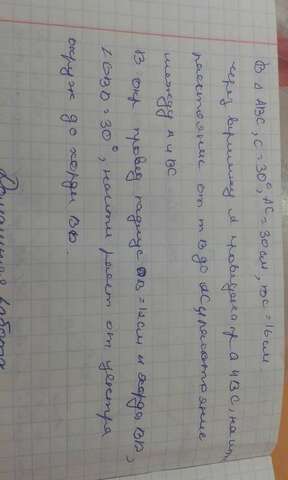 В Δ ABC, C = 30°, AC = 30 см, BC = 16 см.
через вершину A проведена пр a ∥ BC, найти
расстояние от т B до AC, расстояние
между a и BC
В окр провед радиус OB = 14 см и хорда BD,
∠OBD = 30°, найти расст от центра
окруж до хорды BD.
Домашняя работа